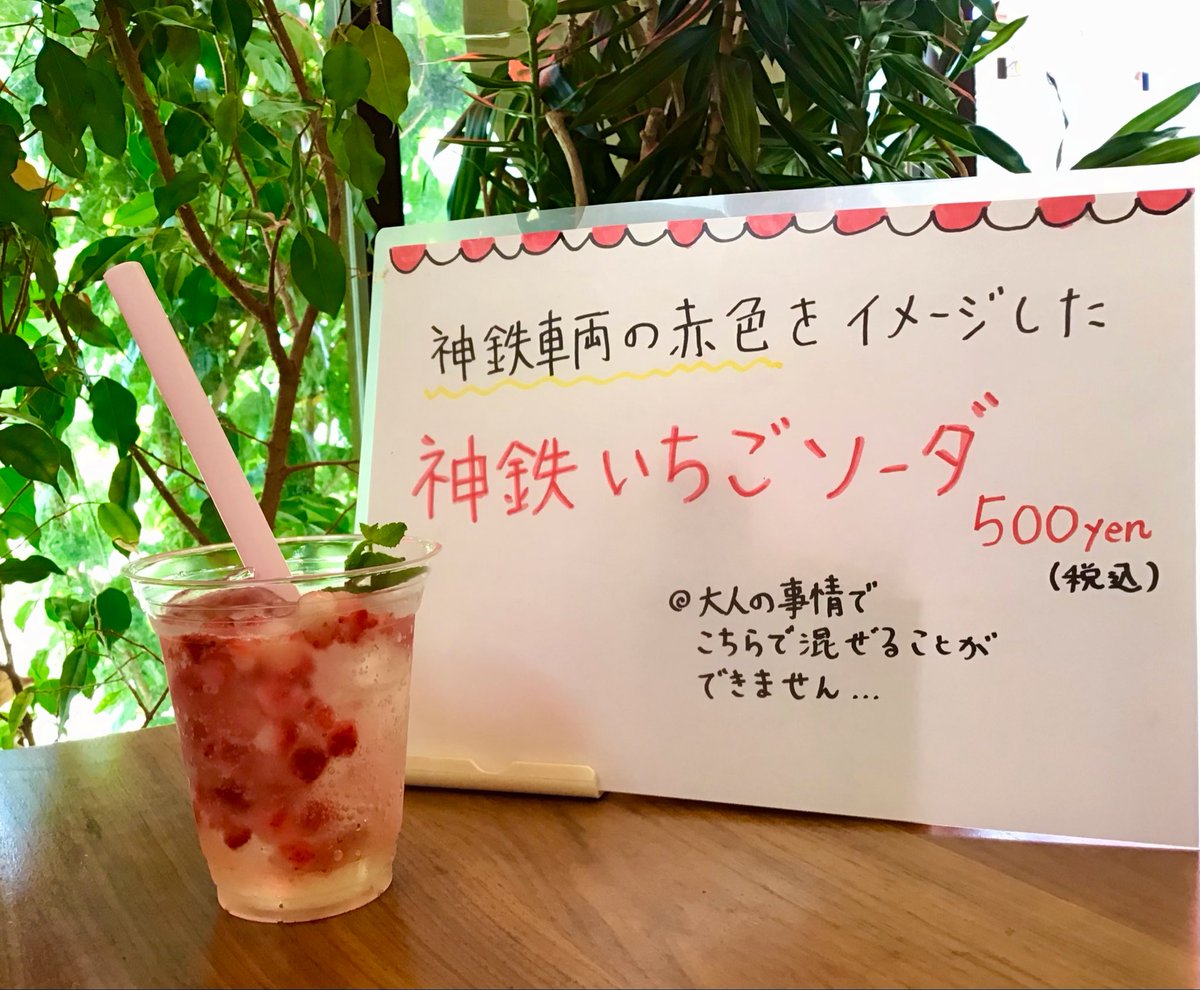 神鉄車両の赤色をイメージした
神鉄いちごソーダ
500yen
(税込)
@大人の事情で
こちらで混ぜることが
できません...